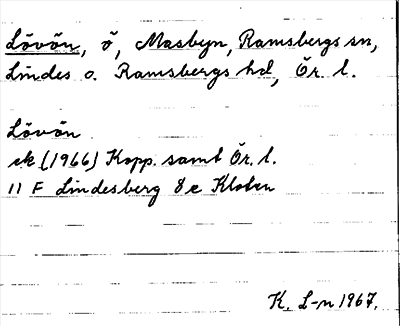 Lövön, ö, Masbyn, Ramsbergs sn,
Lindes o. Ramsbergs hd, Ör. l.
Lövön
ek (1966) Kopp. samt Ör. l.
11 F Lindesberg 8 e Kloten
K. L-n 1967.